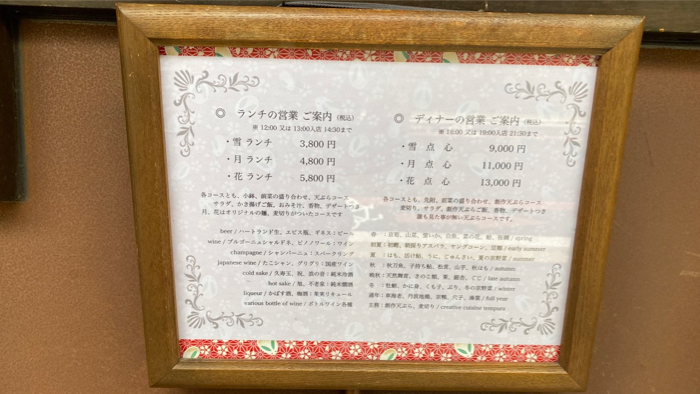 ◎ ランチの営業 ご案内（税込）
※ 12:00 又は 13:00入店 14:30まで
・雪 ランチ 3,800 円
・月 ランチ 4,800 円
・花 ランチ 5,800 円
各コースとも、小鉢、前菜の盛り合わせ、天ぷらコース
サラダ、かき揚げご飯、おみそ汁、香物、デザートつき
月、花はオリジナルの麺、麦切りがついたコースです
beer / ハートランド生、エビス瓶、ギネス：ビール
wine / ブルゴーニュシャルドネ、ピノノワール：ワイン
champagne / シャンパーニュ：スパークリング
japanese wine / たこシャン、グリグリ：国産ワイン
cold sake / 久寿玉、祝、浪の音：純米冷酒
hot sake / 旭、不老泉：純米燗酒
liqueur / かぼす酒、梅酒：果実リキュール
various bottle of wine / ボトルワイン各種
◎ ディナーの営業 ご案内（税込）
※ 18:00 又は 19:00入店 21:30まで
・雪 点 心 9,000 円
・月 点 心 11,000 円
・花 点 心 13,000 円
各コースとも、先附、前菜の盛り合わせ、創作天ぷらコース
麦切り、サラダ、創作天ぷらご飯、香物、デザートつき
誰も見た事が無い天ぷらコースです。
/ spring
初夏：初鰹、朝採りアスパラ、ヤングコーン、
/ early summer
夏 ：はも、活け鮎、うに、じゅんさい、夏の京野菜 / summer
秋 ：秋刀魚、子持ち鮎、松茸、山芋、秋はも / autumn
晩秋：天然舞茸、きのこ類、栗、銀杏、ぐじ / late autumn
冬 ：牡蠣、かに身、くも子、ぶり、冬の京野菜 / winter
通年：車海老、丹波地鶏、京鴨、穴子、湯葉 / full year
主題：創作天ぷら、麦切り / creative cuisine tempura